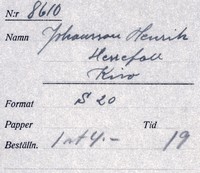 N:r 8610
Namn Johansson Henrik
Herrefall
Kivo
Format S 20
Papper Tid
Beställn. 1 st 4.- 19